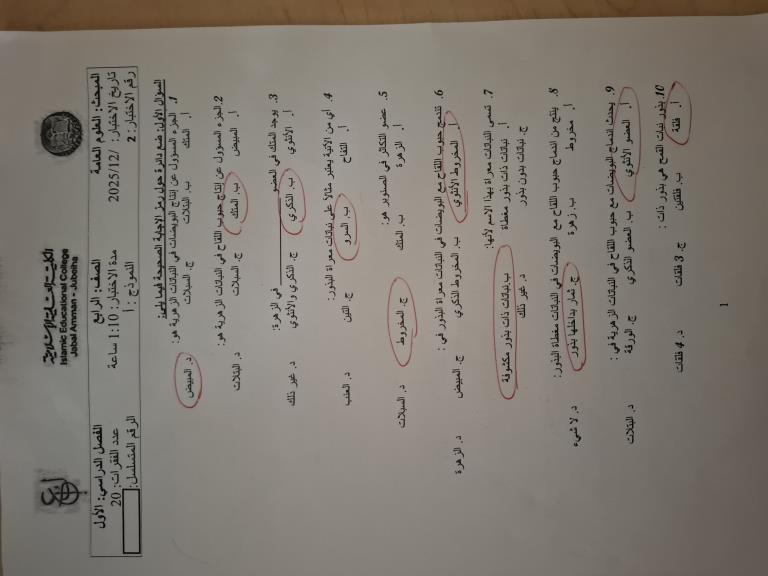 الكلية العلمية الإسلامية
Islamic Educational College
Jabal Amman - Jubeiha
المبحث: العلوم العامة الصف: الرابع الفصل الدراسي: الأول
تاريخ الاختبار: /12/2025 مدة الاختبار: 1:10 ساعة عدد الفقرات: 20
رقم الاختبار: 2 النموذج: أ الرقم المتسلسل:
السؤال الأول: ضع دائرة حول رمز الإجابة الصحيحة فيما يلي:
1. الجزء المسؤول عن إنتاج البويضات في النباتات الزهرية هو:
أ. المتك ب. البتلات ج. السبلات د. المبيض
2. الجزء المسؤول عن إنتاج حبوب اللقاح في النباتات الزهرية هو:
أ. المبيض ب. المتك ج. السبلات د. البتلات
3. يوجد المتك في العضو ________ في الزهرة:
أ. الأنثوي ب. الذكري ج. الذكري والأنثوي د. غير ذلك
4. أي من الآتية يعتبر مثالا على نباتات معراة البذور:
أ. التفاح ب. السرو ج. التين د. العنب
5. عضو التكاثر في الصنوبر هو:
أ. الزهرة ب. المتك ج. المخروط د. السبلات
6. تندمج حبوب اللقاح مع البويضات في النباتات معراة البذور في :
أ. المخروط الأنثوي ب. المخروط الذكري ج. المبيض د. الزهرة
7. تسمى النباتات معراة بهذا الاسم لأنها:
أ. نباتات ذات بذور مغطاة ب. نباتات ذات بذور مكشوفة
ج. نباتات بدون بذور د. غير ذلك
8. ينتج من اندماج حبوب اللقاح مع البويضات في النباتات مغطاة البذور:
أ. مخروط ب. زهرة ج. ثمار بداخلها بذور د. لا شيء
9. يحدث اندماج البويضات مع حبوب اللقاح في النباتات الزهرية في :
أ. العضو الأنثوي ب. العضو الذكري ج. الورقة د. البتلات
10. بذور نبات القمح هي بذور ذات :
أ. فلقة ب. فلقتين ج. 3 فلقات د. 4 فلقات
1